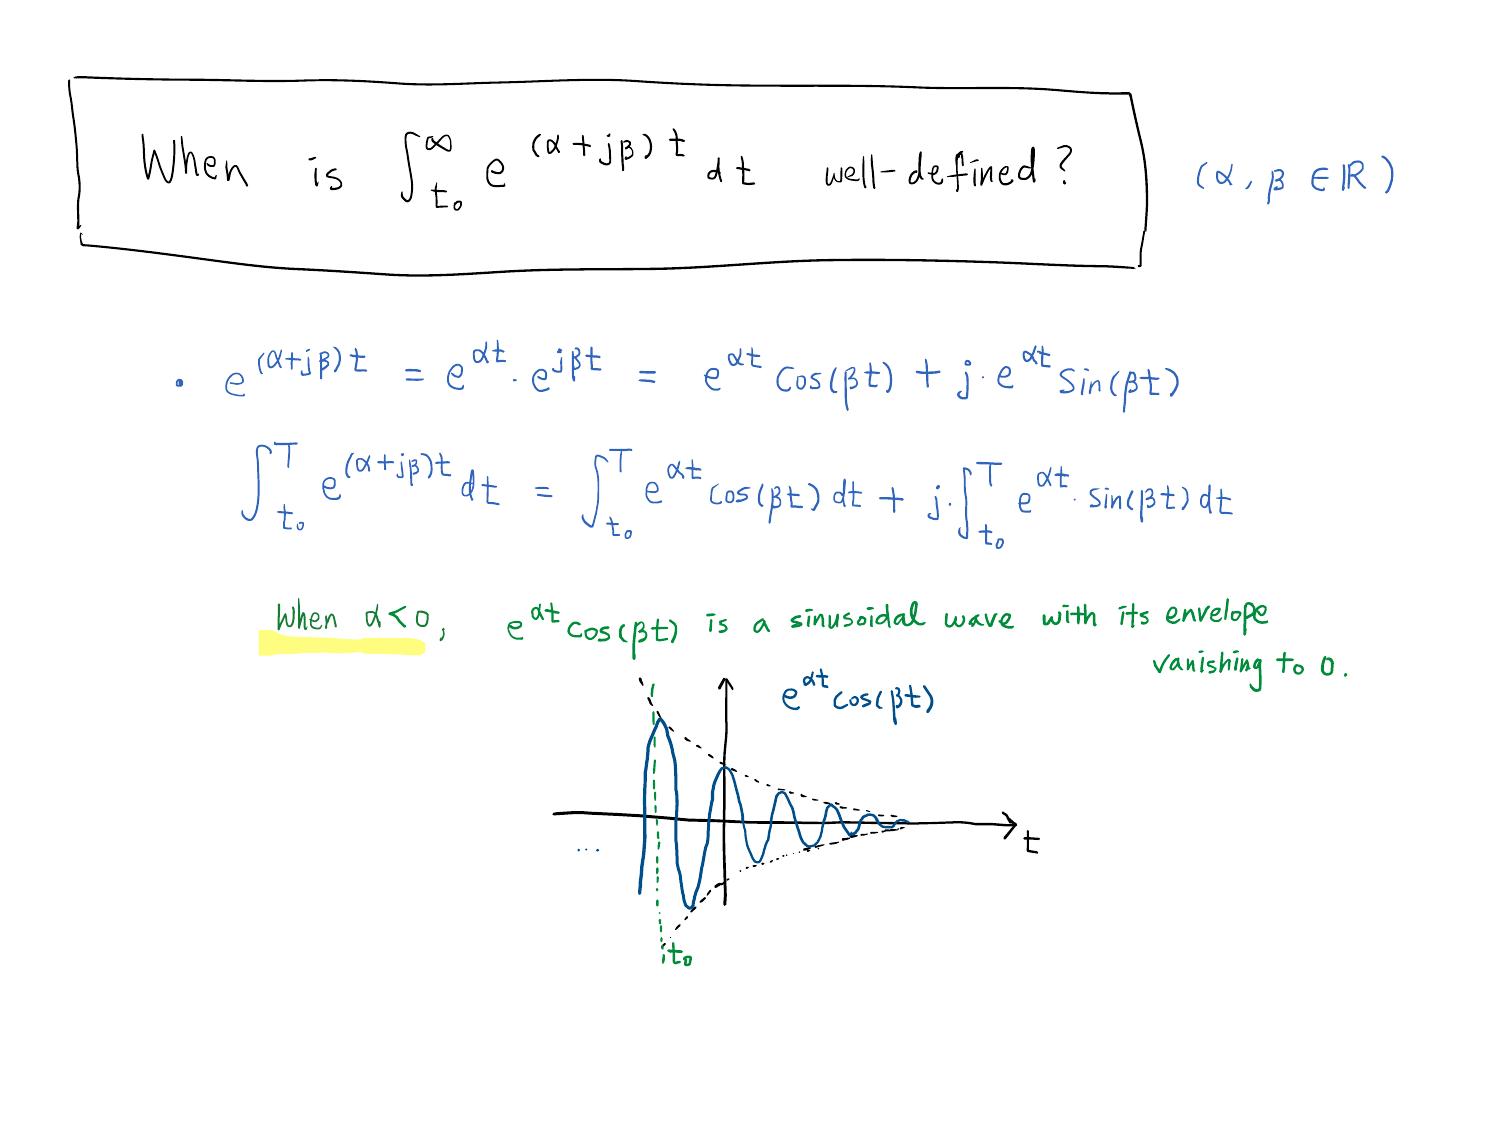 When is ∫_{t₀}^{∞} e^{(α+jβ)t} dt well-defined? (α, β ∈ ℝ)
• e^{(α+jβ)t} = e^{αt} · e^{jβt} = e^{αt} Cos(βt) + j · e^{αt} Sin(βt)
∫_{t₀}^{T} e^{(α+jβ)t} dt = ∫_{t₀}^{T} e^{αt} Cos(βt) dt + j · ∫_{t₀}^{T} e^{αt} · Sin(βt) dt
When α<0, e^{αt} cos(βt) is a sinusoidal wave with its envelope
vanishing to 0.
e^{αt} cos(βt)
t
...
t₀